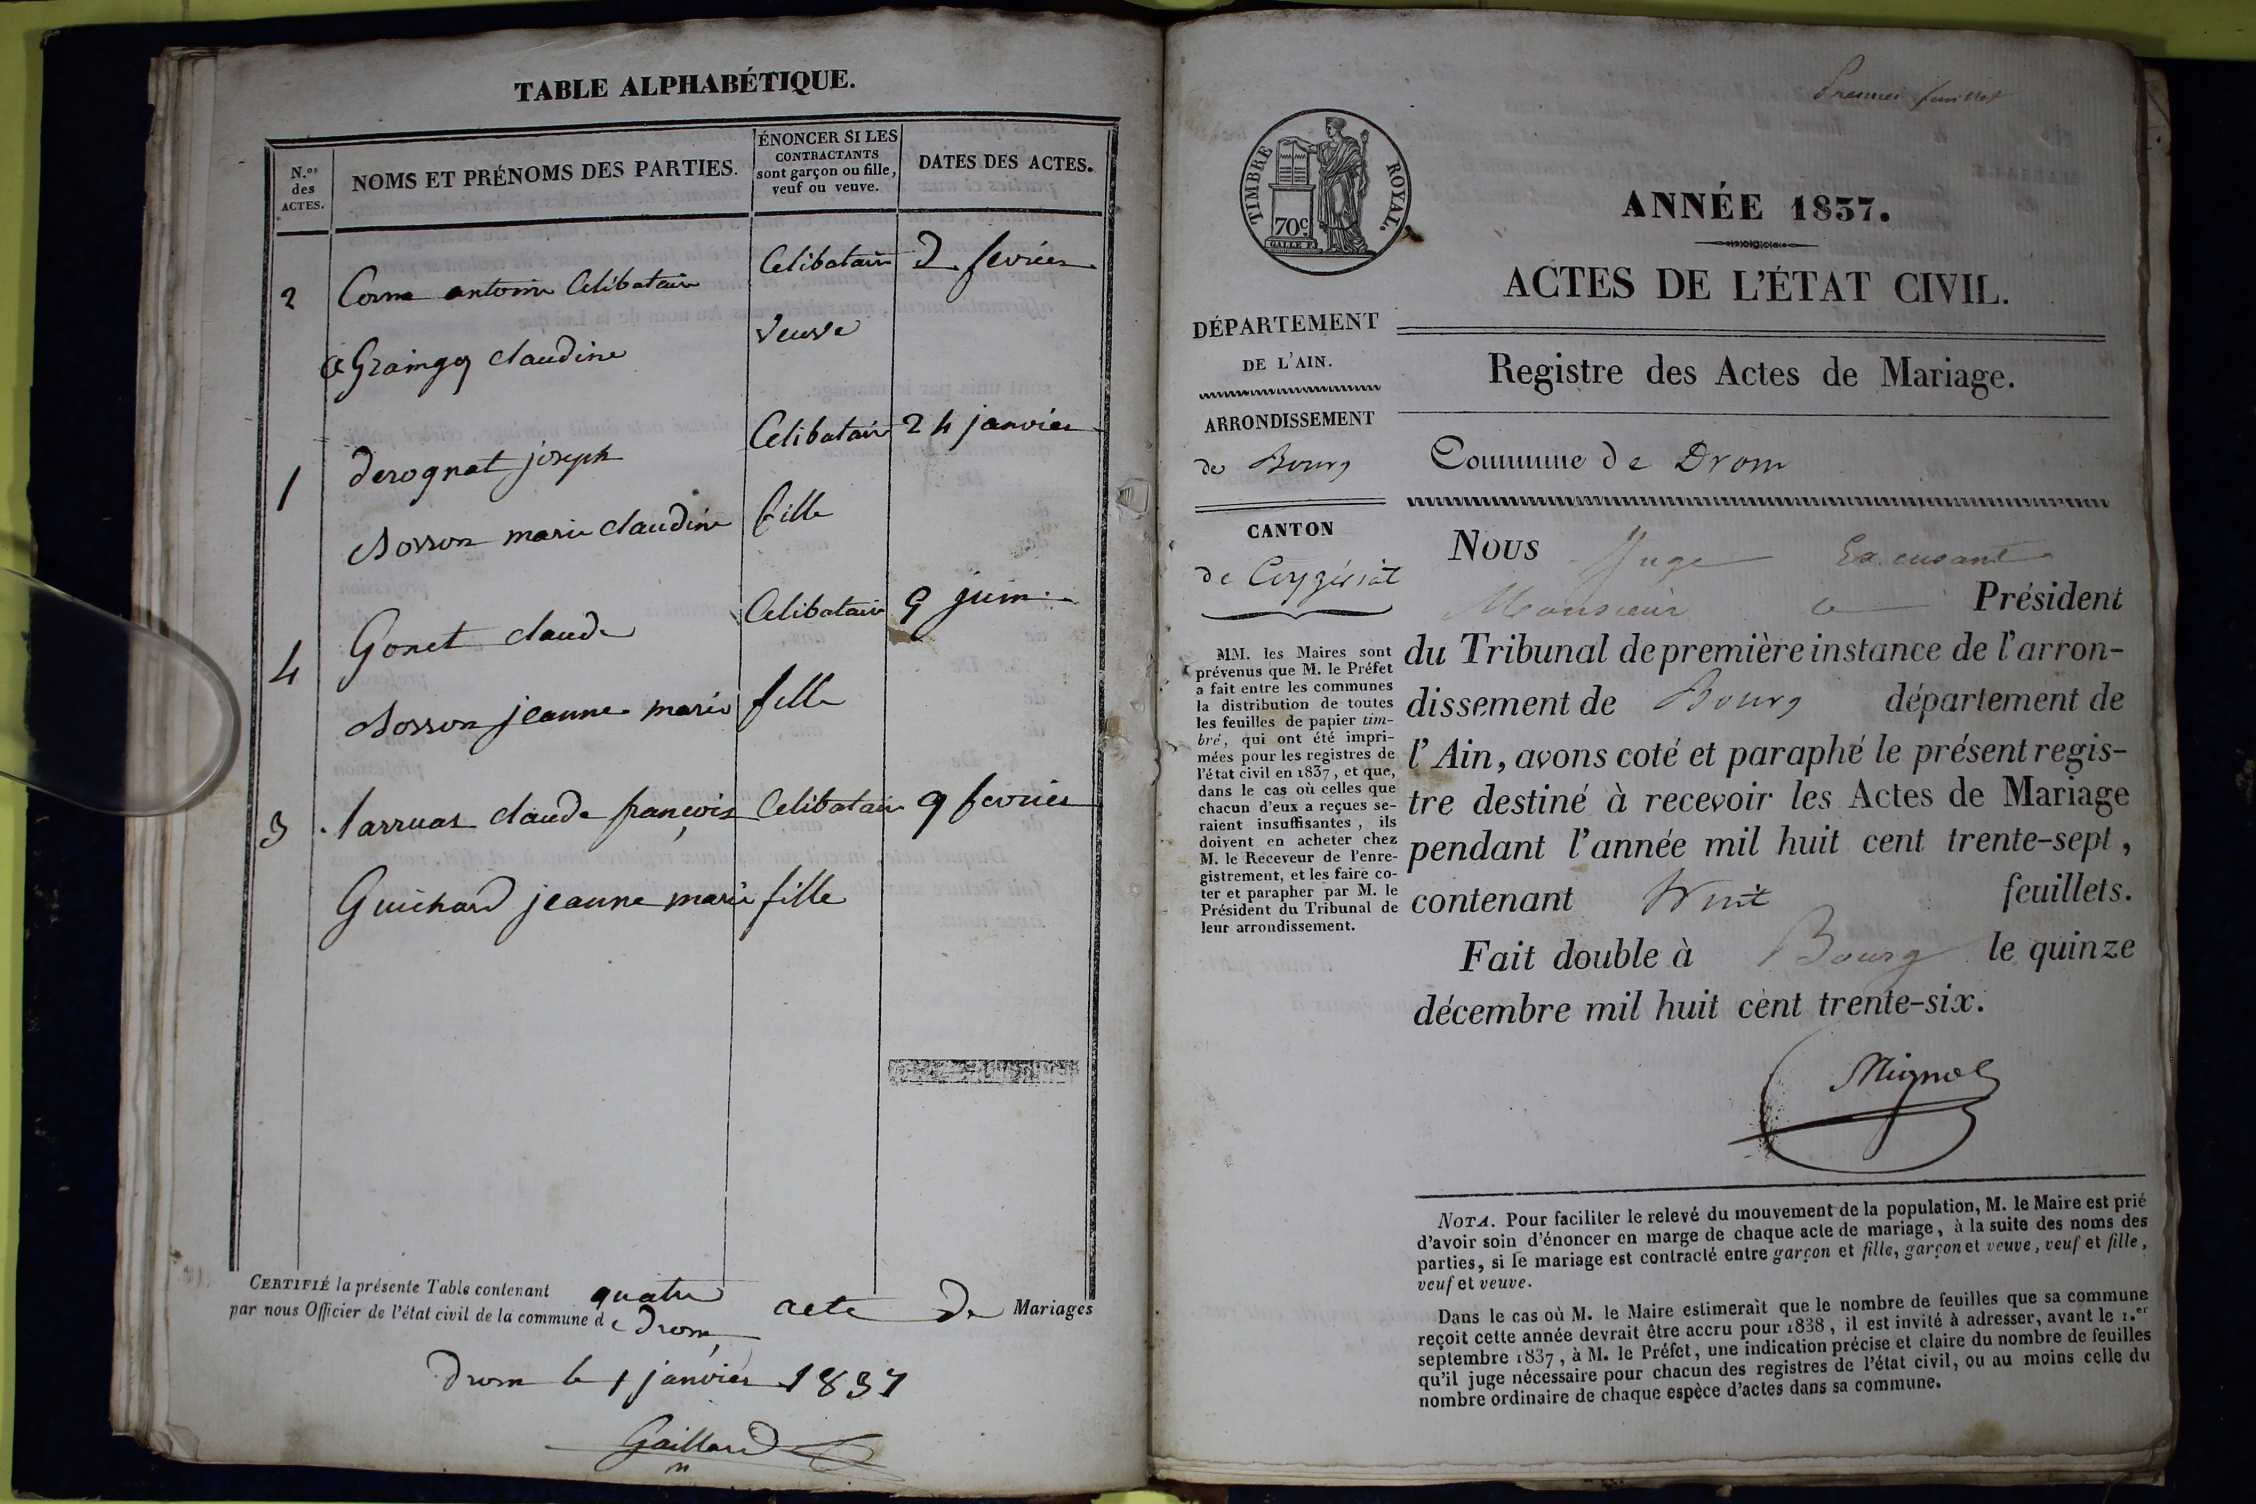 TABLE ALPHABÉTIQUE.
N.os
des
ACTES.
NOMS ET PRÉNOMS DES PARTIES.
ÉNONCER SI LES
CONTRACTANTS
sont garçon ou fille,
veuf ou veuve.
DATES DES ACTES.
2 Corne antoine Celibatair Celibatair 2 fevrier
Graingy claudine veuve
1 derognat joseph Celibatair 24 janvier
Bosson marie claudine fille
4 Gonet claude Celibatair 9 juin
Bosson jeanne marie fille
3 Larruas claude françois Celibatair 9 fevrier
Guichard jeanne marie fille
CERTIFIÉ la présente Table contenant quatre acte de Mariages
par nous Officier de l'état civil de la commune de Drom
Drom le 1 janvier 1837
Gaillard
Premier feuillet
TIMBRE ROYAL.
70c.
ANNÉE 1837.
ACTES DE L'ÉTAT CIVIL.
DÉPARTEMENT
DE L'AIN.
Registre des Actes de Mariage.
ARRONDISSEMENT
de Bourg
Commune de Drom
CANTON
de Ceyzériat
MM. les Maires sont
prévenus que M. le Préfet
a fait entre les communes
la distribution de toutes
les feuilles de papier tim-
bré, qui ont été impri-
mées pour les registres de
l'état civil en 1837, et que,
dans le cas où celles que
chacun d'eux a reçues se-
raient insuffisantes, ils
doivent en acheter chez
M. le Receveur de l'enre-
gistrement, et les faire co-
ter et parapher par M. le
Président du Tribunal de
leur arrondissement.
Nous Juge Excusant
Monsieur le Président
du Tribunal de première instance de l'arron-
dissement de Bourg département de
l'Ain, avons coté et paraphé le présent regis-
tre destiné à recevoir les Actes de Mariage
pendant l'année mil huit cent trente-sept,
contenant huit feuillets.
Fait double à Bourg le quinze
décembre mil huit cent trente-six.
NOTA. Pour faciliter le relevé du mouvement de la population, M. le Maire est prié
d'avoir soin d'énoncer en marge de chaque acte de mariage, à la suite des noms des
parties, si le mariage est contracté entre garçon et fille, garçon et veuve, veuf et fille,
veuf et veuve.
Dans le cas où M. le Maire estimerait que le nombre de feuilles que sa commune
reçoit cette année devrait être accru pour 1838, il est invité à adresser, avant le 1.er
septembre 1837, à M. le Préfet, une indication précise et claire du nombre de feuilles
qu'il juge nécessaire pour chacun des registres de l'état civil, ou au moins celle du
nombre ordinaire de chaque espèce d'actes dans sa commune.